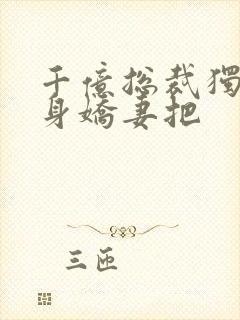 千億総裁獨
身嬌妻把
三匝